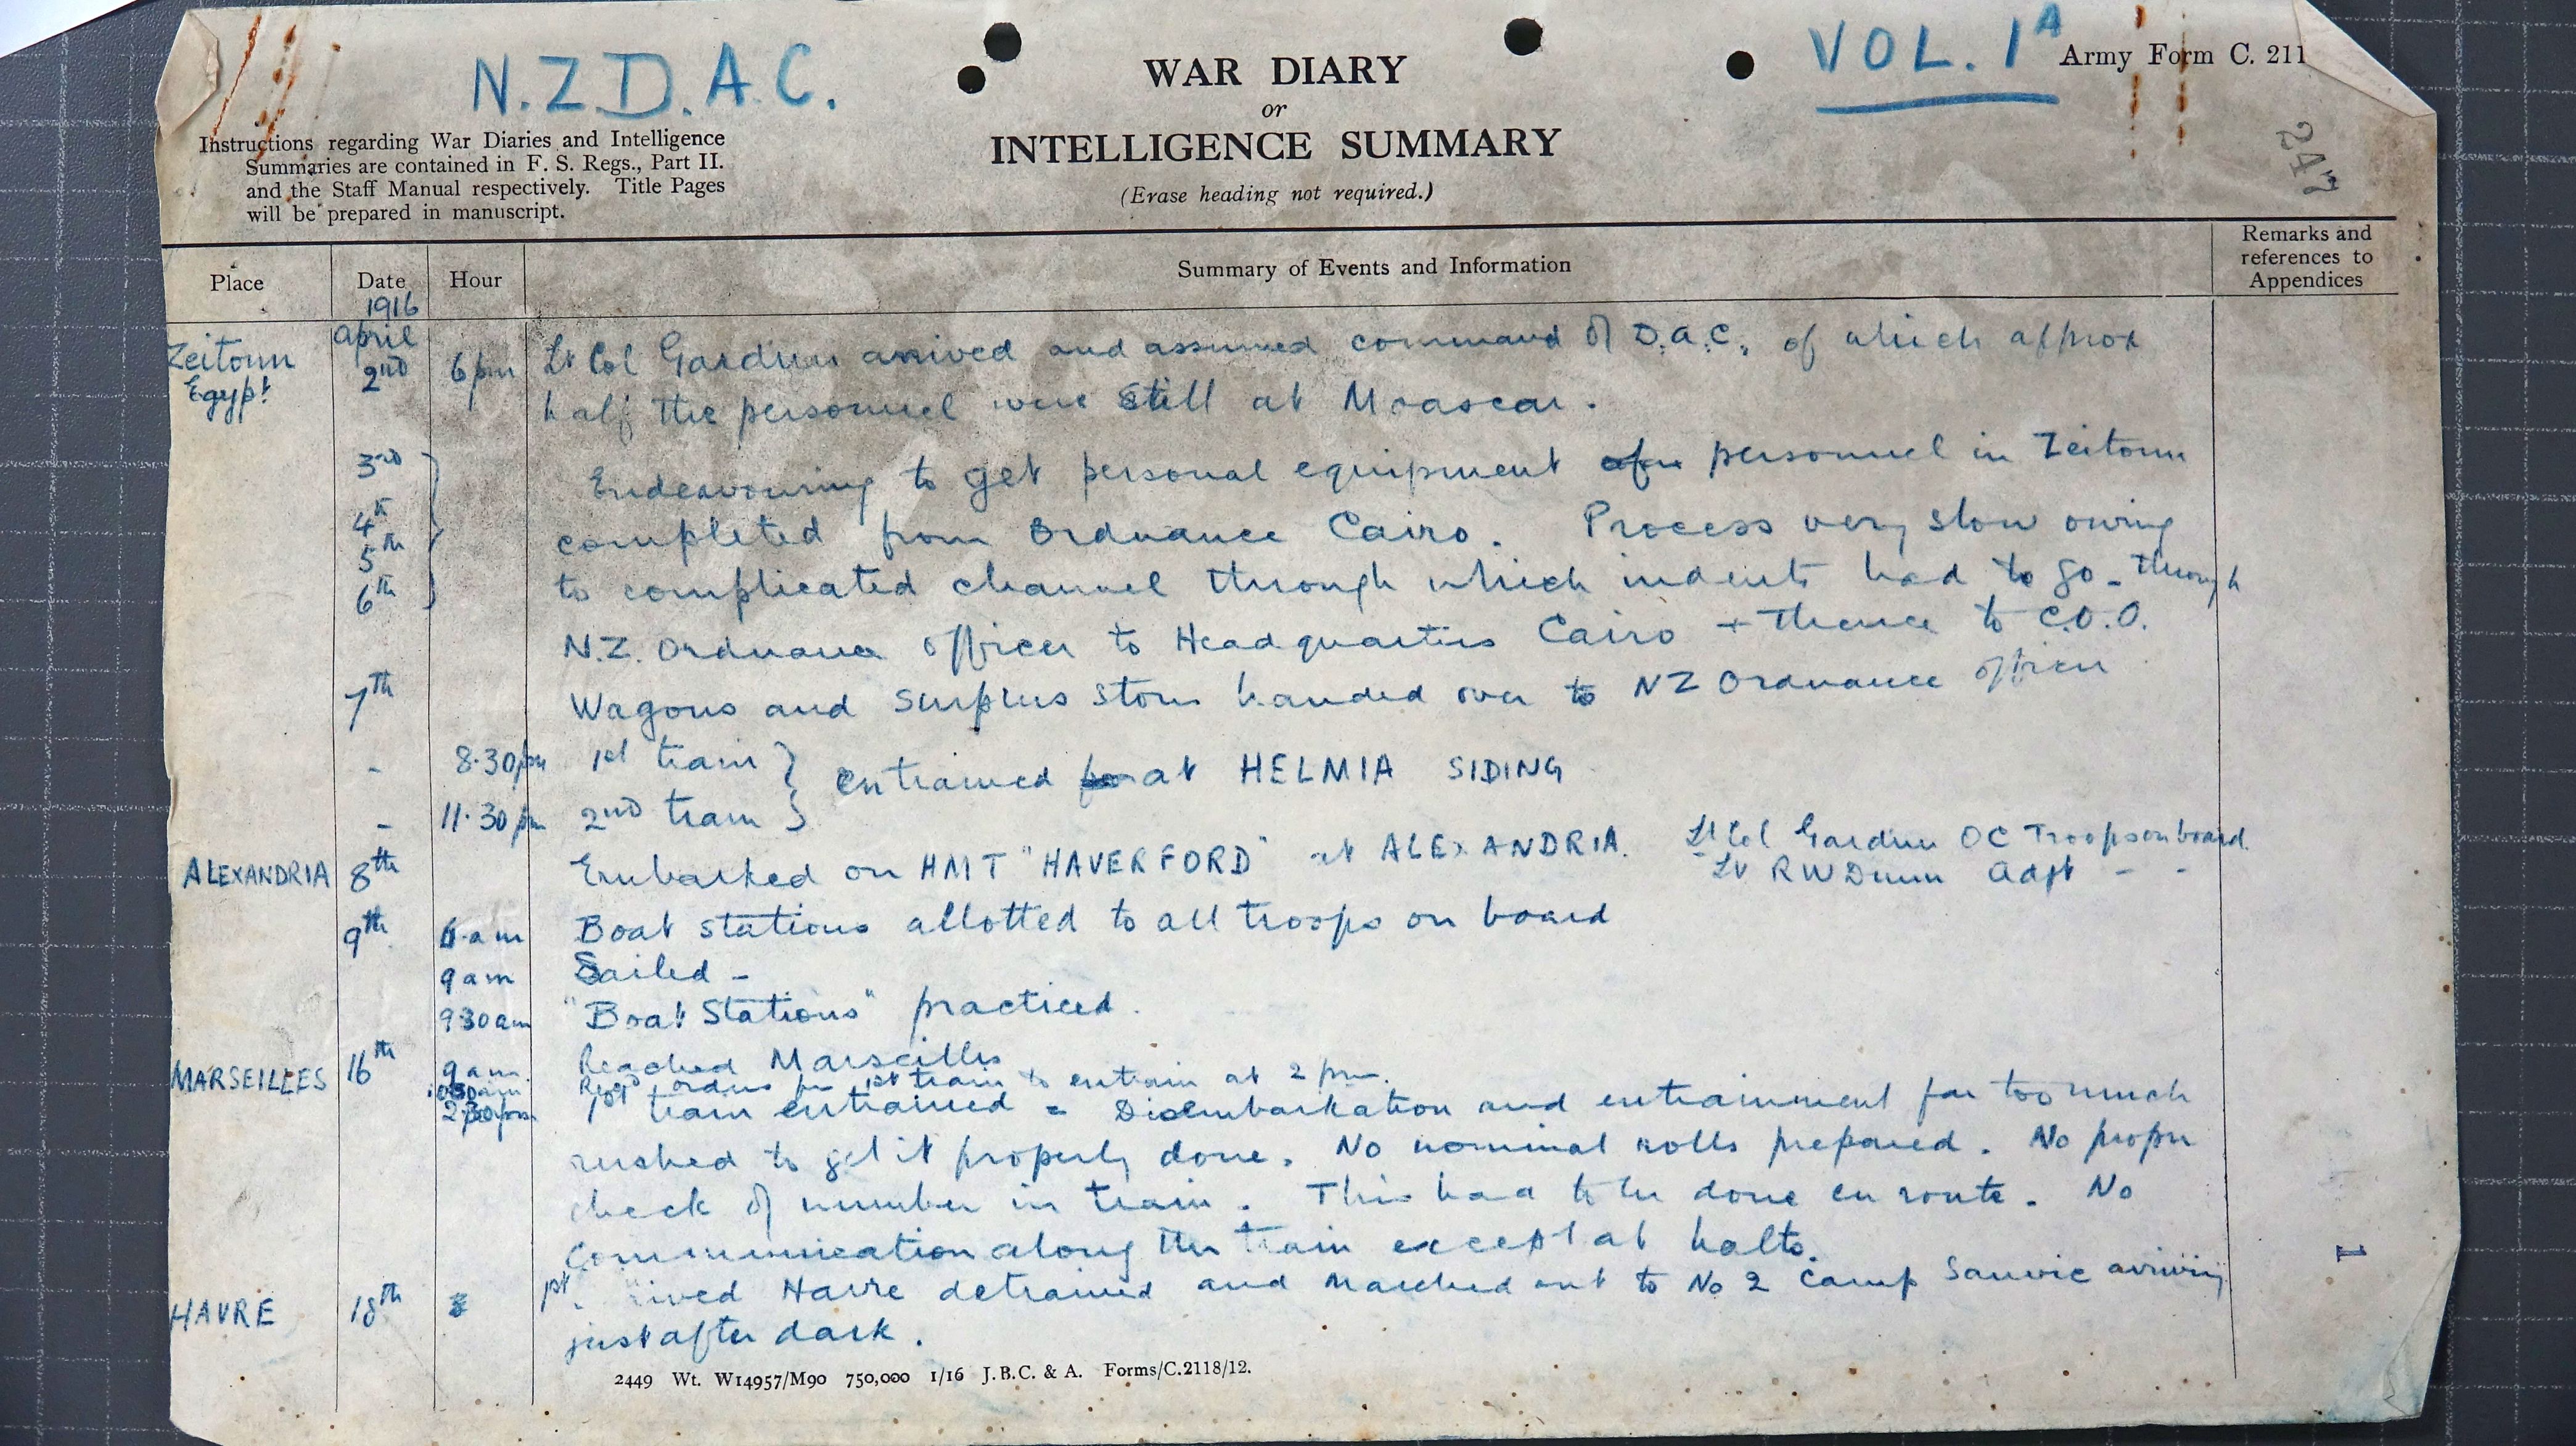 N.Z.D.A.C.
VOL. 1A
Army Form C. 211
WAR DIARY
or
INTELLIGENCE SUMMARY
(Erase heading not required.)
Instructions regarding War Diaries and Intelligence
Summaries are contained in F. S. Regs., Part II.
and the Staff Manual respectively. Title Pages
will be prepared in manuscript.
247
Place Date Hour Summary of Events and Information Remarks and references to Appendices
1916
Zeitoun Egypt April 2nd 6pm Lt Col Gardner arrived and assumed command of D.A.C. of which approx
half the personnel were still at Moascar.
3rd Endeavouring to get personal equipment personnel in Zeitoun
4th completed from Ordnance Cairo. Process very slow owing
5th
6th to complicated channel through which indents had to go - through
N.Z. Ordnance officer to Headquarters Cairo + thence to C.O.O.
7th Wagons and surplus stores handed over to NZ Ordnance officer
- 8.30pm 1st train } entrained at HELMIA SIDING
- 11.30pm 2nd train }
ALEXANDRIA 8th Embarked on HMT "HAVERFORD" at ALEXANDRIA. Lt Col Gardner OC Troops on board.
Lt RW Dunn Adjt - -
9th 6 am Boat stations allotted to all troops on board
9am Sailed -
930am "Boat Stations" practiced.
MARSEILLES 16th 9am. Reached Marseilles
Recd orders for 1st train to entrain at 2 pm.
2.30pm 1st train entrained = Disembarkation and entrainment far too much
rushed to get it properly done. No nominal rolls prepared. No proper
check of number in train. This had to be done en route. No
communication along the train except at halts.
HAVRE 18th 1st Havre detrained and marched out to No 2 Camp Sanvic arriving
just after dark.
1
2449 Wt. W14957/M90 750,000 1/16 J.B.C. & A. Forms/C.2118/12.